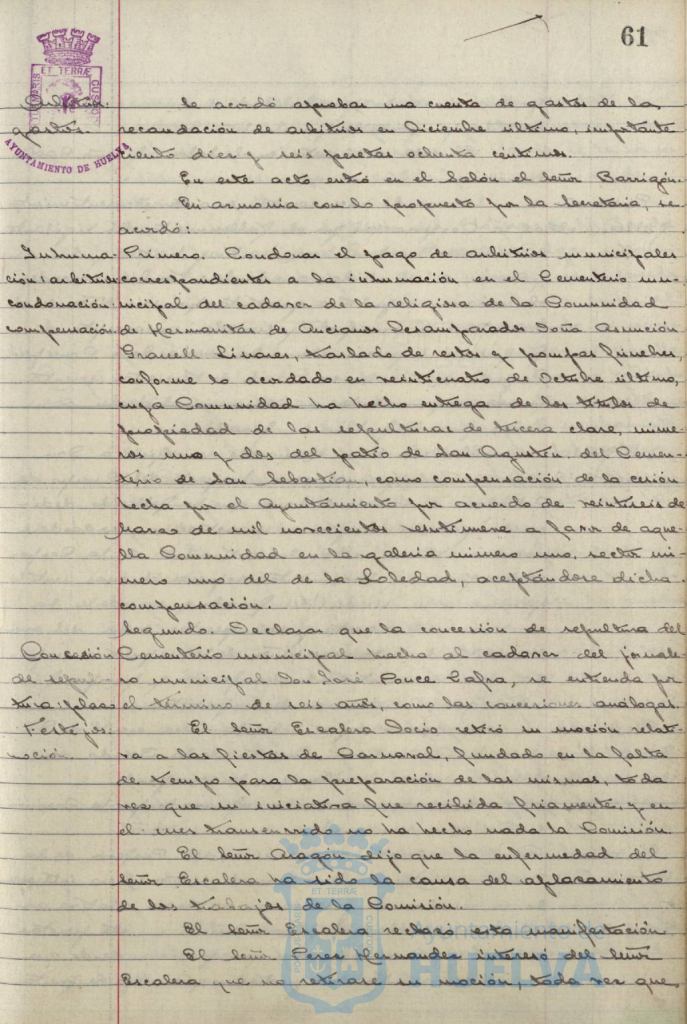 61
ET TERRÆ
AYUNTAMIENTO DE HUELVA
Arbitrios
gastos.
Se acordó aprobar una cuenta de gastos de la
recaudación de arbitrios en Diciembre último, importante
ciento diez y seis pesetas ochenta céntimos.
En este acto entró en el Salón el Señor Barrigón.
En armonía con lo propuesto por la Secretaría, se
acordó:
Inhuma-
ción: arbitrios
condonación
compensación.
Primero. Condonar el pago de arbitrios municipales
correspondientes a la inhumación en el Cementerio mu-
nicipal del cadaver de la religiosa de la Comunidad
de Hermanitas de Ancianos Desamparados Doña Asunción
Granell Linares, traslado de restos y pompas fúnebres,
conforme lo acordado en veinticuatro de Octubre último,
cuya Comunidad ha hecho entrega de los títulos de
propiedad de las sepulturas de tercera clase, núme-
ros uno y dos del patio de San Agustín del Cemen-
terio de San Sebastián, como compensación de la cesión
hecha por el Ayuntamiento por acuerdo de veintiseis de
Marzo de mil novecientos veintinueve a favor de aque-
lla Comunidad en la galería número uno, sector nú-
mero uno del de la Soledad, aceptándose dicha
compensación.
Concesión
de sepul-
tura: plazo
Segundo. Declarar que la concesión de sepultura del
Cementerio municipal hecha al cadaver del jornale-
ro municipal Don José Ponce Lafra, se entienda por
el término de seis años, como las concesiones análogas.
Festejos:
moción.
El Señor Escalera Docio retiró su moción relati-
va a las fiestas de Carnaval, fundado en la falta
de tiempo para la preparación de las mismas, toda
vez que su iniciativa fue recibida friamente, y en
el mes transcurrido no ha hecho nada la Comisión.
El Señor Aragón dijo que la enfermedad del
Señor Escalera ha sido la causa del aplazamiento
de los trabajos de la Comisión.
El Señor Escalera rechazó esta manifestación
El Señor Perez Hernandez interesó del Señor
Escalera que no retirase su moción, toda vez que
ET TERRÆ
Ayuntamiento de
HUELVA